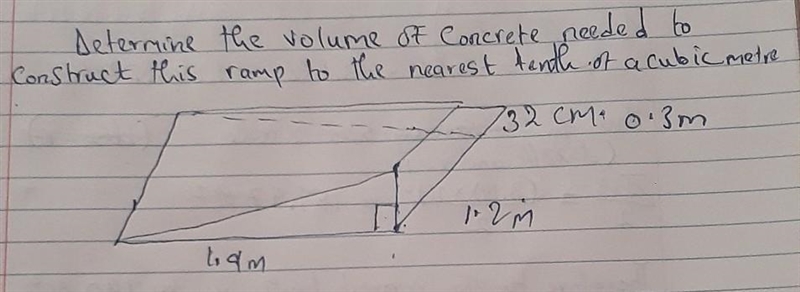 Determine the volume of Concrete needed to
Construct this ramp to the nearest tenth of a cubic metre
32 cm. 0.3m
1.2m
1.9m